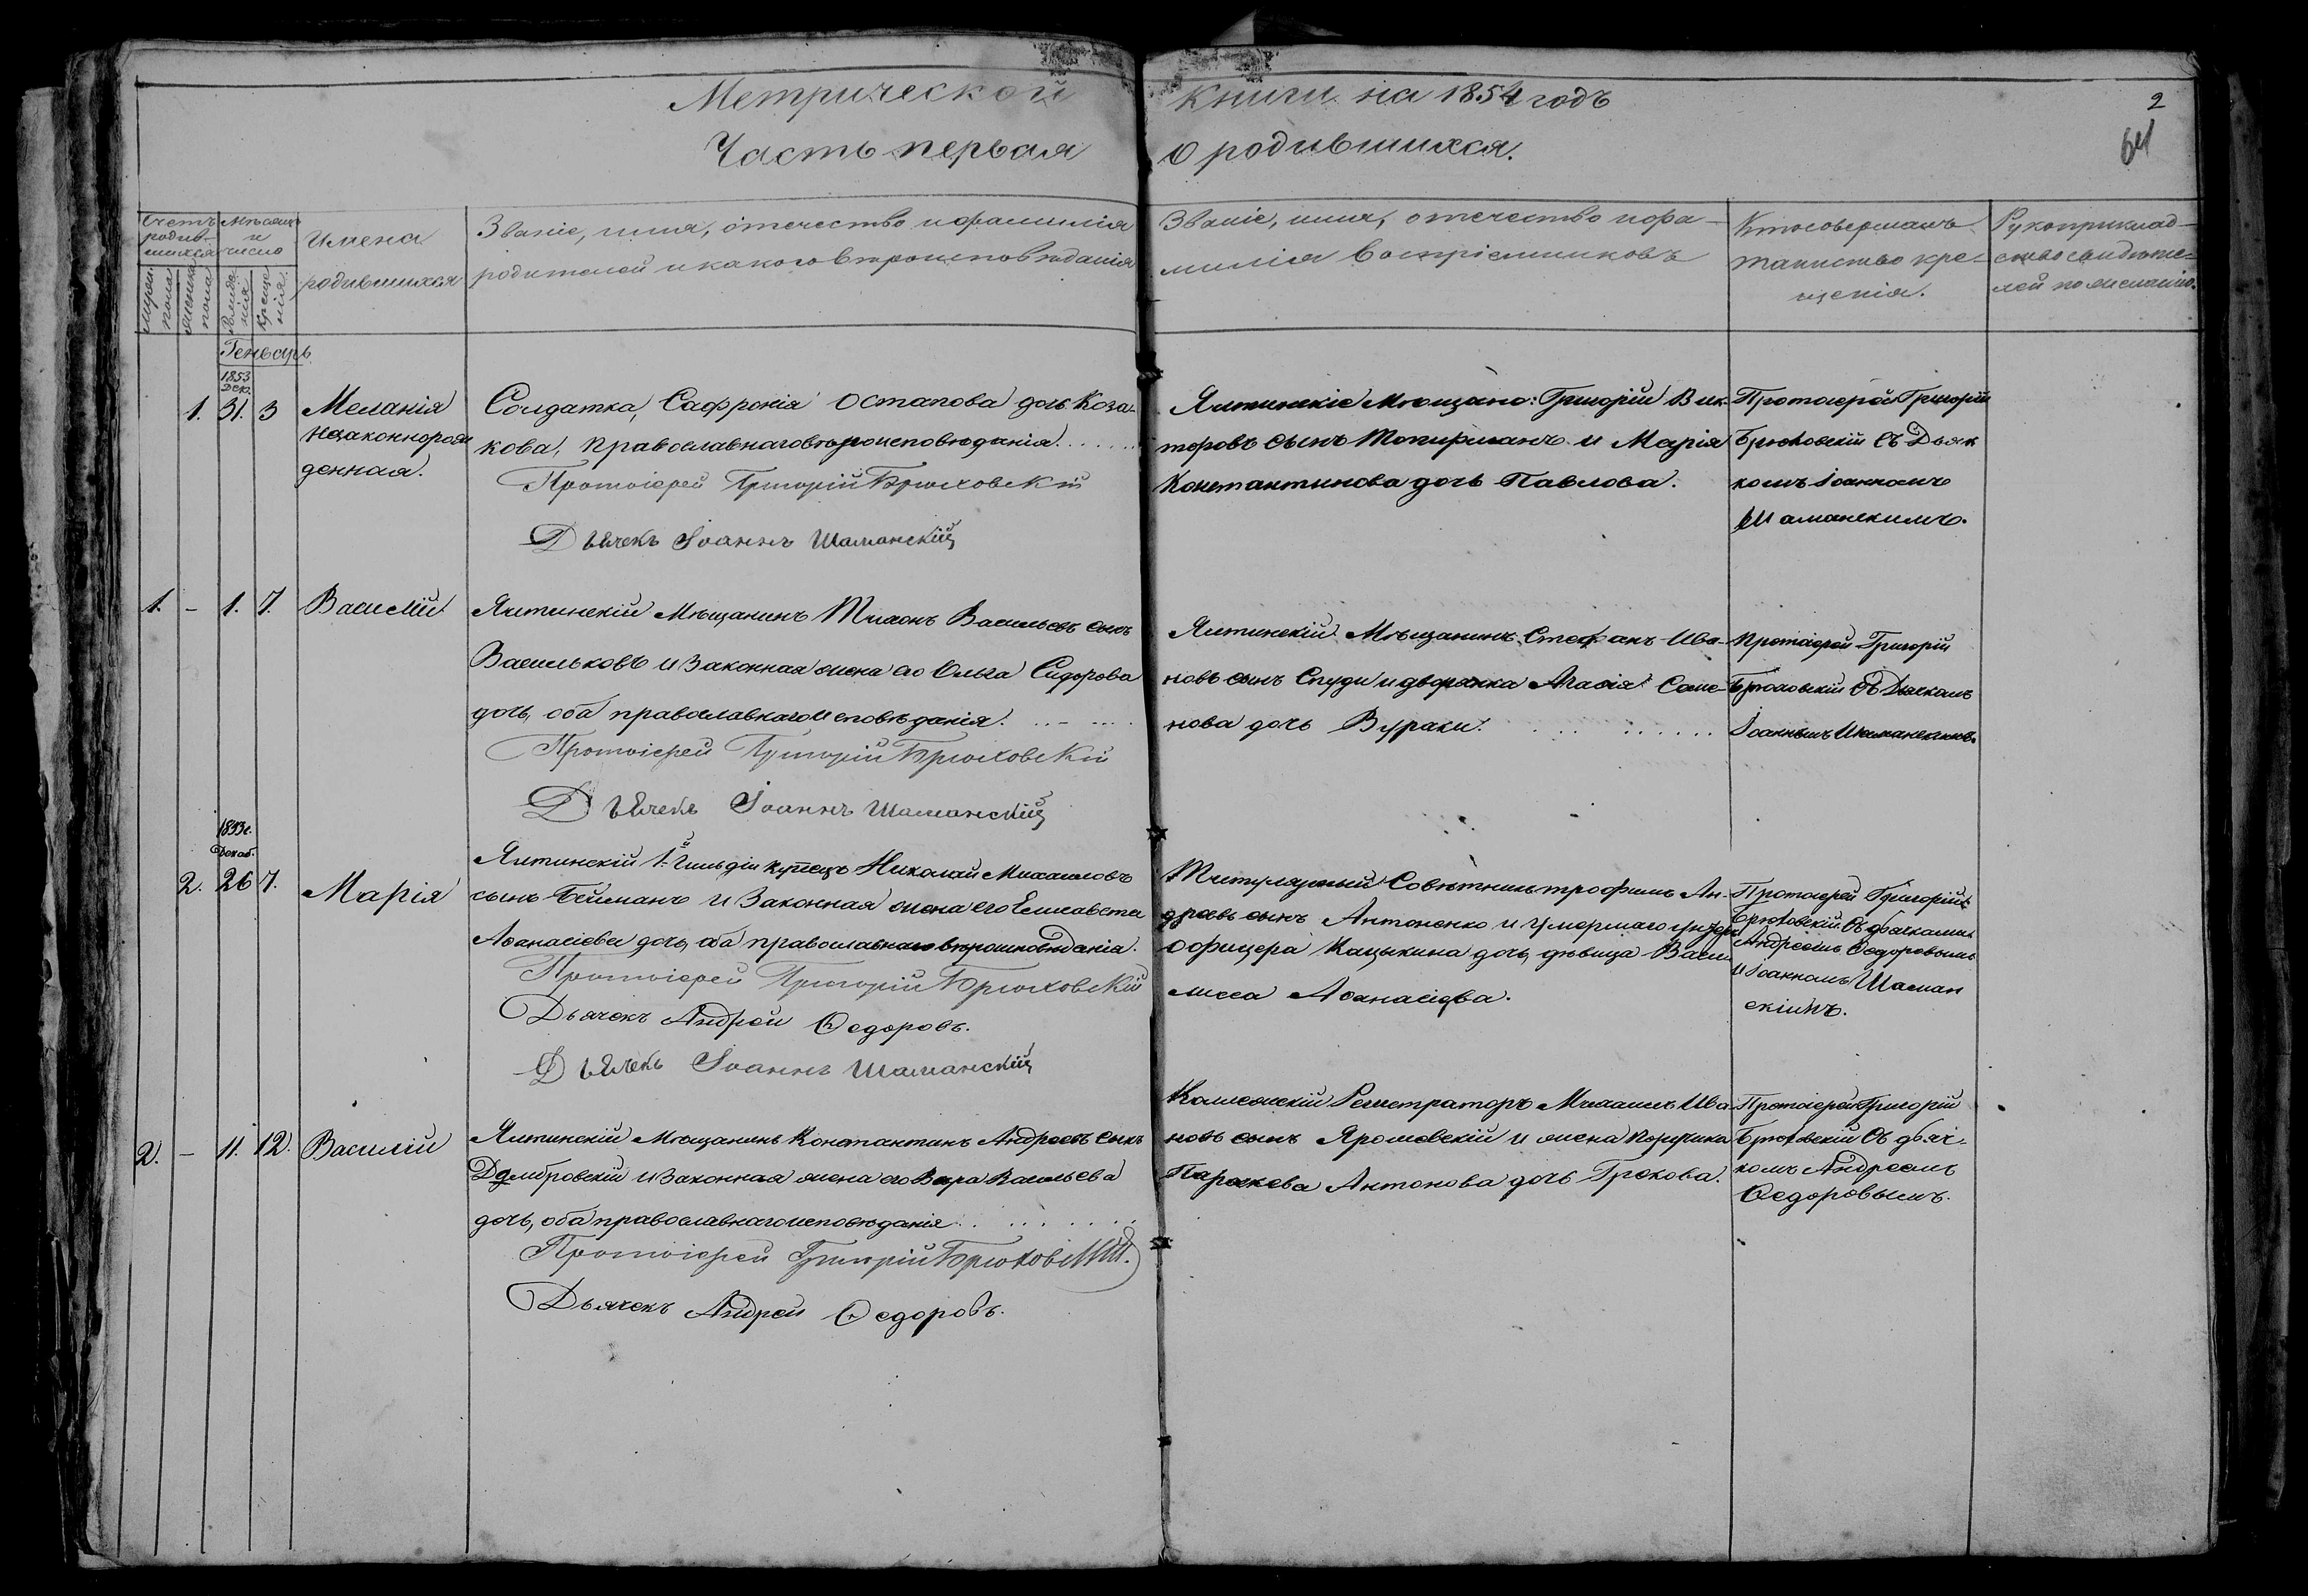 Метрической книги на 1854 годъ
2
64
Часть первая О родившихся.
Счетъ родив-
шихся
Мѣсяцъ
и
число
Имена
родившихся
Званіе, имя, отечество и фамилія
родителей и какого вѣроисповѣданія
Званіе, имя, отечество и фа-
милія воспріемниковъ
Кто совершалъ
таинство кре-
щенія.
Рукоприклад-
ство свидѣте-
лей по желанію.
Муж. пола
Женска пола
Рожде-
нія
Креще
нія.
Генварь.
1853
Дек.
1. 31. 3
Меланія
незаконнорож
денная.
Солдатка, Сафронія Остапова дочь Коза-
кова, православнаго вѣроисповѣданія.
Протоіерей Григорій Брюховскій
Дьячекъ Іоаннъ Шаманскій
Ялтинскіе Мѣщане: Григорій Вик-
торовъ сынъ Топирманъ и Марія
Константинова дочь Павлова.
Протоіерей Григорій
Брюховскій съ Дьяч
комъ Іоанномъ
Шаманскимъ.
1. - 1. 7.
Василій
Ялтинскій Мѣщанинъ Тихонъ Васильевъ сынъ
Васильковъ и законная жена его Ольга Сидорова
дочь, оба православнаго исповѣданія.
Протоіерей Григорій Брюховскій
Дьячекъ Іоаннъ Шаманскій
Ялтинскій Мѣщанинъ Стефанъ Ива-
новъ сынъ Спуди и дворянка Агафія Семе-
нова дочь Вураки.
Протоіерей Григорій
Брюховскій съ Дьячкомъ
Іоанномъ Шаманскимъ.
1853 г.
Декаб.
2. 26 7.
Марія
Ялтинскій 1-й Гильдіи купецъ Николай Михаиловъ
сынъ Гейманъ и законная жена его Елисавета
Аѳанасіева дочь, оба православнаго вѣроисповѣданія.
Протоіерей Григорій Брюховскій
Дьячекъ Андрей Ѳедоровъ.
Дьячекъ Іоаннъ Шаманскій
Титулярный Совѣтникъ Трофимъ Ан-
дреевъ сынъ Антоненко и умершаго унтеръ
офицера Кацыкина дочь, дѣвица Васи
лисса Аѳанасіева.
Протоіерей Григорій
Брюховскій съ дьячками
Андреемъ Ѳедоровымъ
и Іоанномъ Шаман
скимъ.
2. - 11. 12.
Василій
Ялтинскій Мѣщанинъ Константинъ Андреевъ сынъ
Домбровскій и законная жена его Вера Васильева
дочь, оба православнаго исповѣданія.
Протоіерей Григорій Брюховскій.
Дьячекъ Андрей Ѳедоровъ.
Коллежскій Регистраторъ Михаилъ Ива
новъ сынъ Ярошевскій и жена поручика
Параскева Антонова дочь Грекова.
Протоіерей Григорій
Брюховскій съ дьяч-
комъ Андреемъ
Ѳедоровымъ.